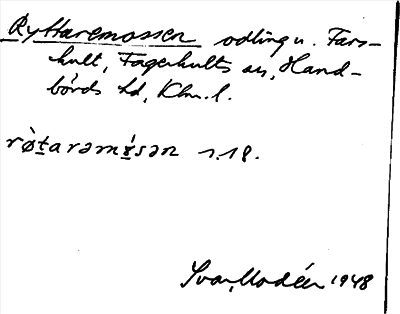 Ryttaremossen odling u. Fars-
hult, Fagerhults sn, Hand-
börds hd, Klm. l.
rø̀taramɤ́sən 1.18.
Ivar Modéer 1948